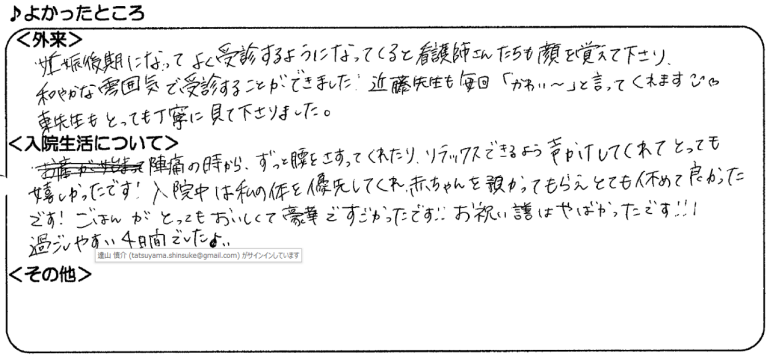 ♪よかったところ
＜外来＞
妊娠後期になって よく受診するようになってくると看護師さんたちも顔を覚えて下さり、
和やかな雰囲気で受診することができました！近藤先生も毎回「かわい〜」と言ってくれます
東先生もとっても丁寧に見て下さりました。
＜入院生活について＞
陣痛の時から、ずっと腰をさすってくれたり、リラックスできるよう声かけしてくれてとっても
嬉しかったです！入院中は私の体を優先してくれ、赤ちゃんを預かってもらえとても休めて良かった
です！ごはんがとってもおいしくて豪華ですごかったです!! お祝い膳はやばかったです!!!
過ごしやすい4日間でした♪
達山 慎介 (tatsuyama.shinsuke@gmail.com) がサインインしています
＜その他＞